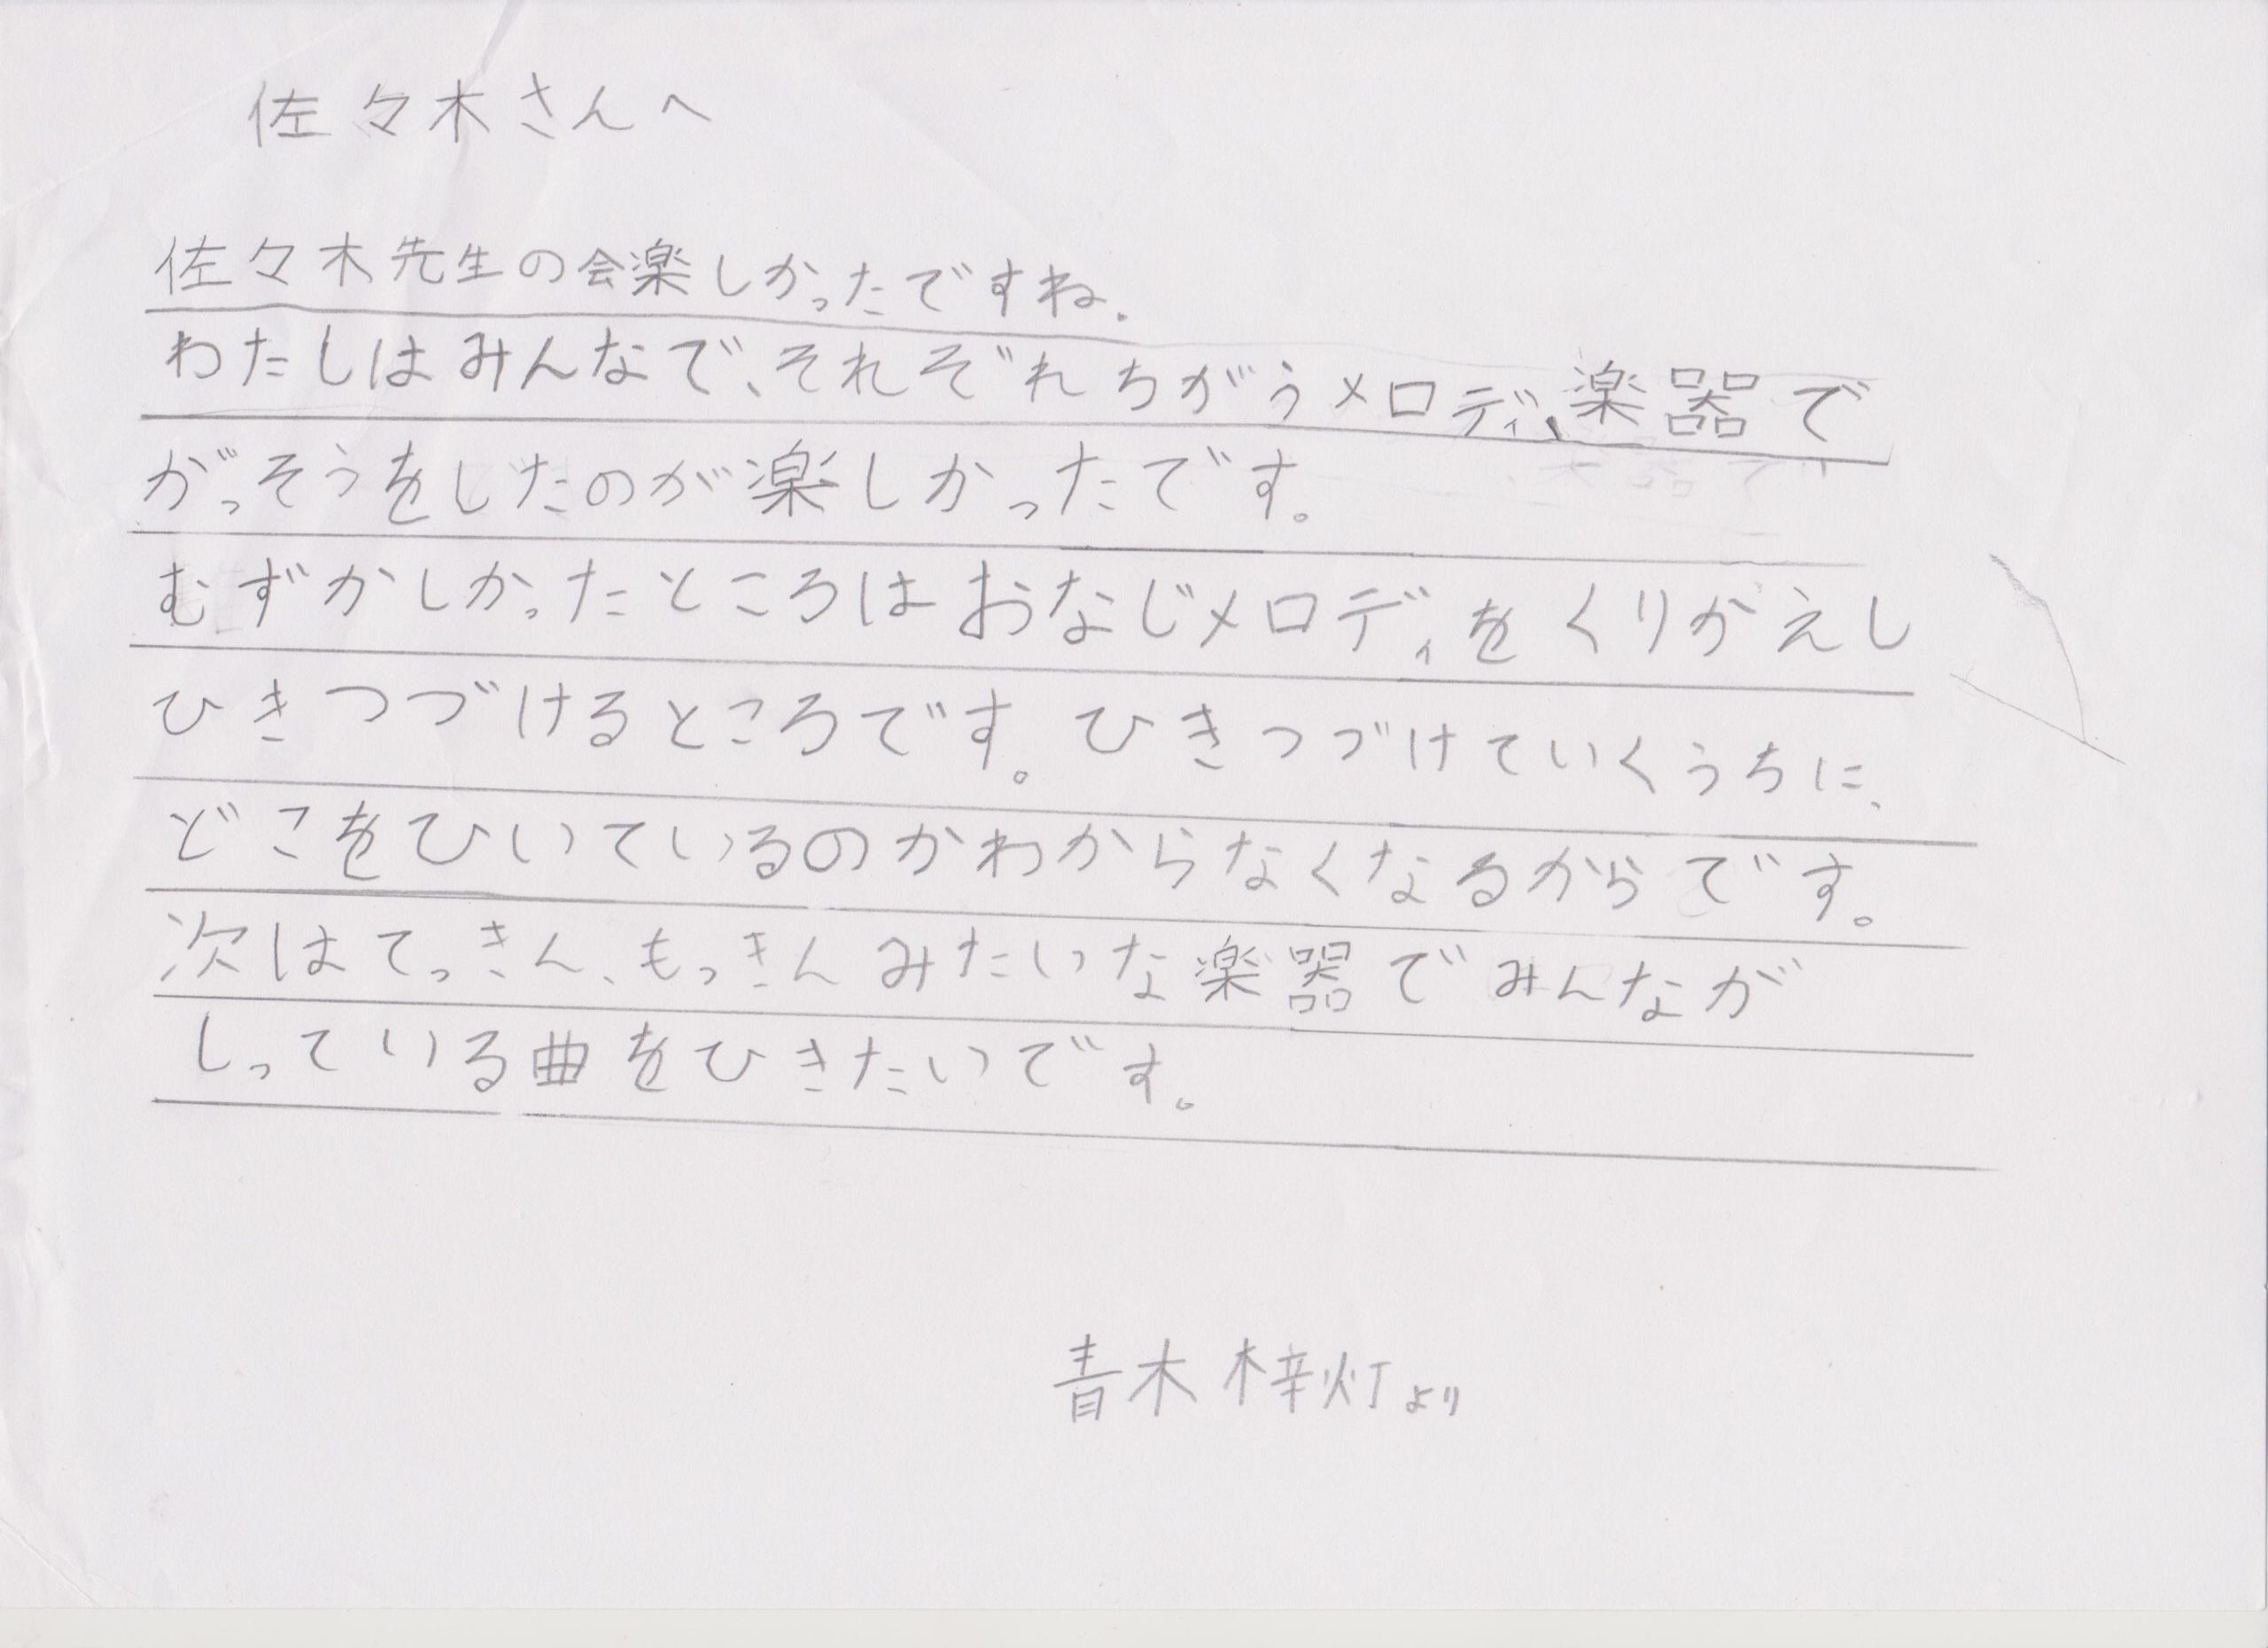 佐々木さんへ
佐々木先生の会楽しかったですね.
わたしはみんなで、それぞれちがうメロディ、楽器で
がっそうをしたのが楽しかったです。
むずかしかったところはおなじメロディをくりかえし
ひきつづけるところです。ひきつづけていくうちに、
どこをひいているのかわからなくなるからです。
次はてっきん、もっきんみたいな楽器でみんなが
しっている曲をひきたいです。
青木梓灯より